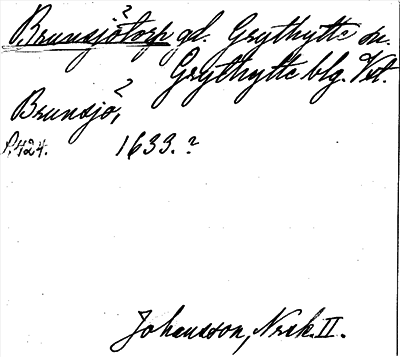 ?
Brunsjötorp gd. Grythytte sn.
Grythytte blg. Vtl.
?
Brunsjö,
P. 424. 1633. ?
Johansson, Norsk. II.